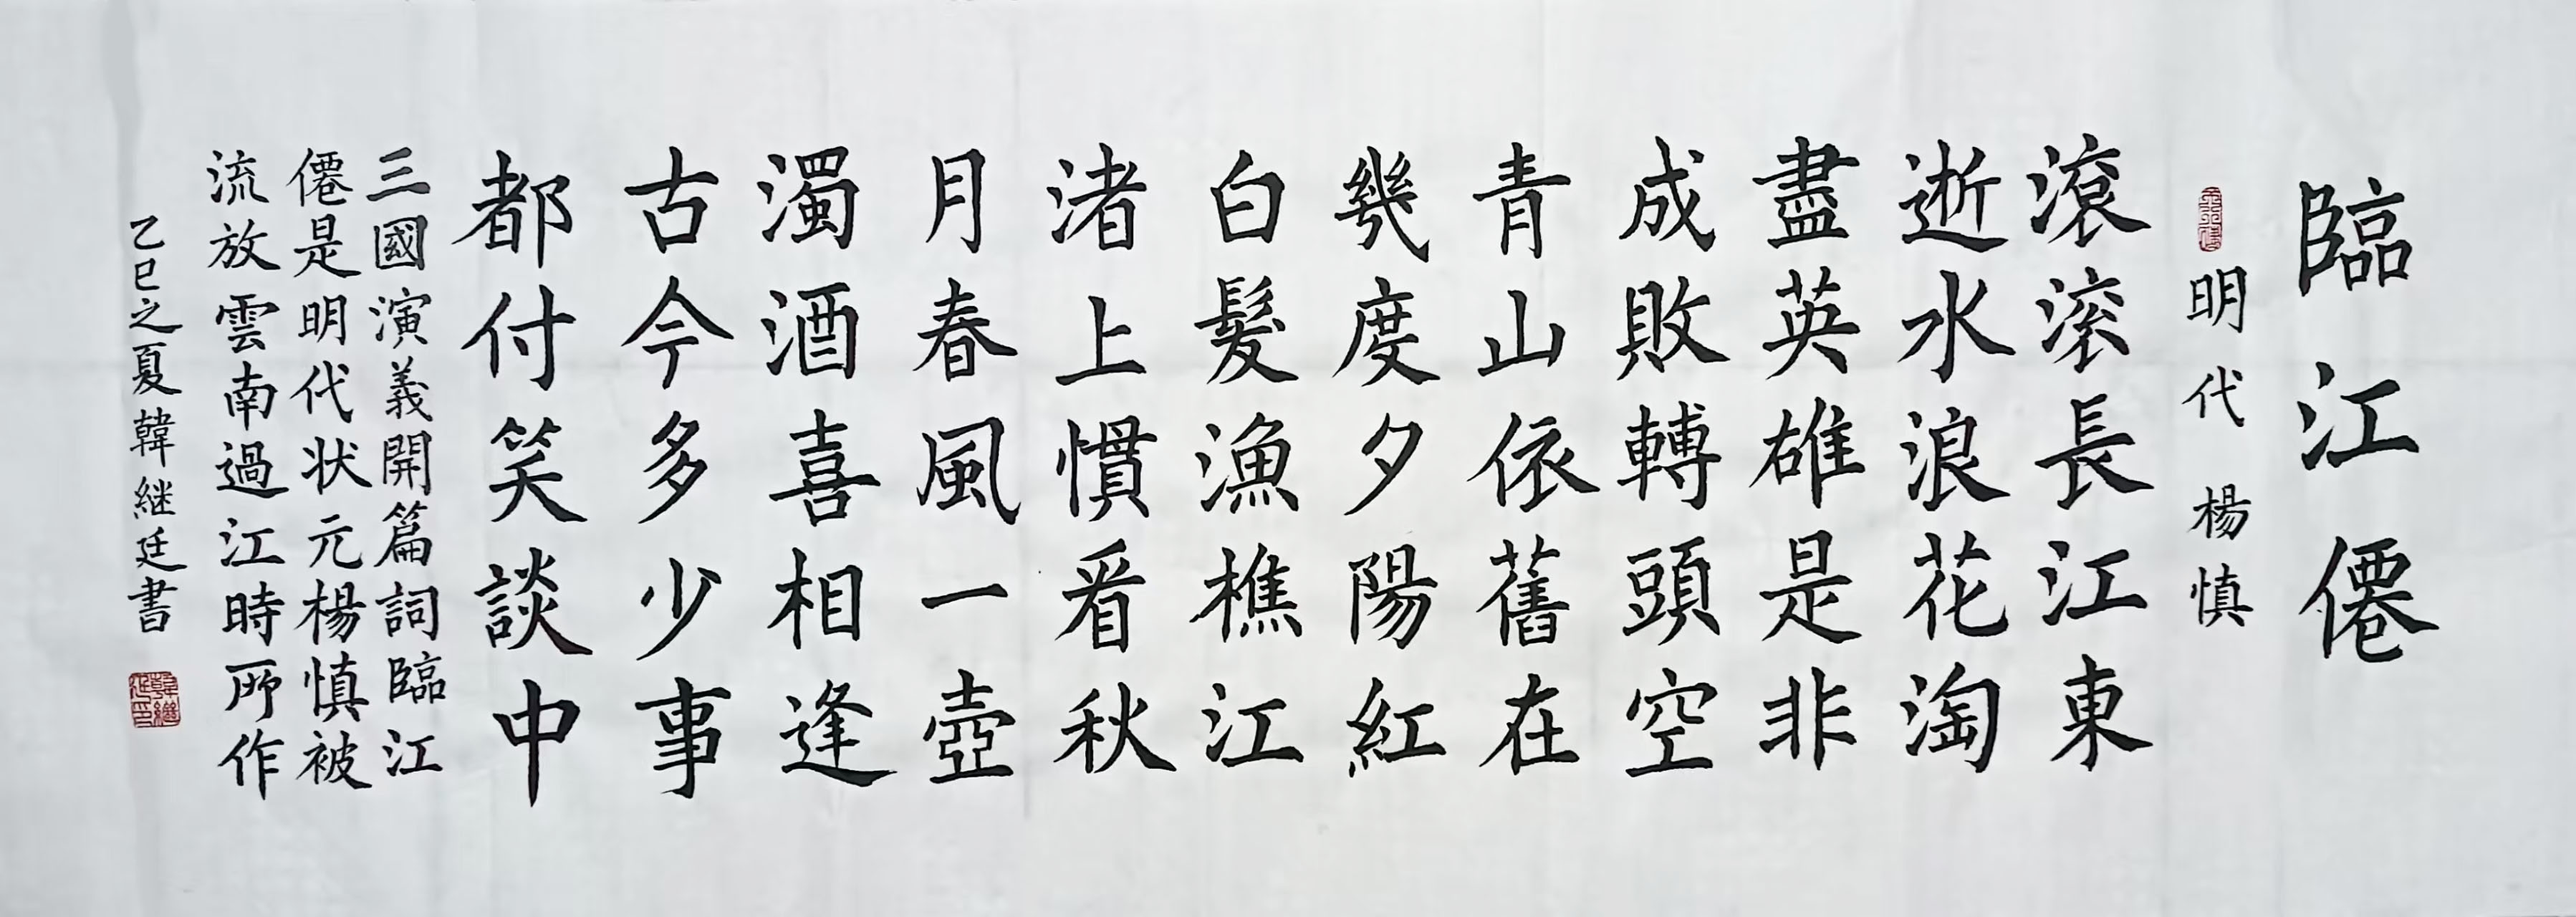 臨江僊
明代 楊慎
滾滚長江東
逝水浪花淘
盡英雄是非
成敗轉頭空
青山依舊在
幾度夕陽紅
白髮漁樵江
渚上慣看秋
月春風一壺
濁酒喜相逢
古今多少事
都付笑談中
三國演義開篇詞臨江
僊是明代状元楊慎被
流放雲南過江時所作
乙巳之夏韓継廷書